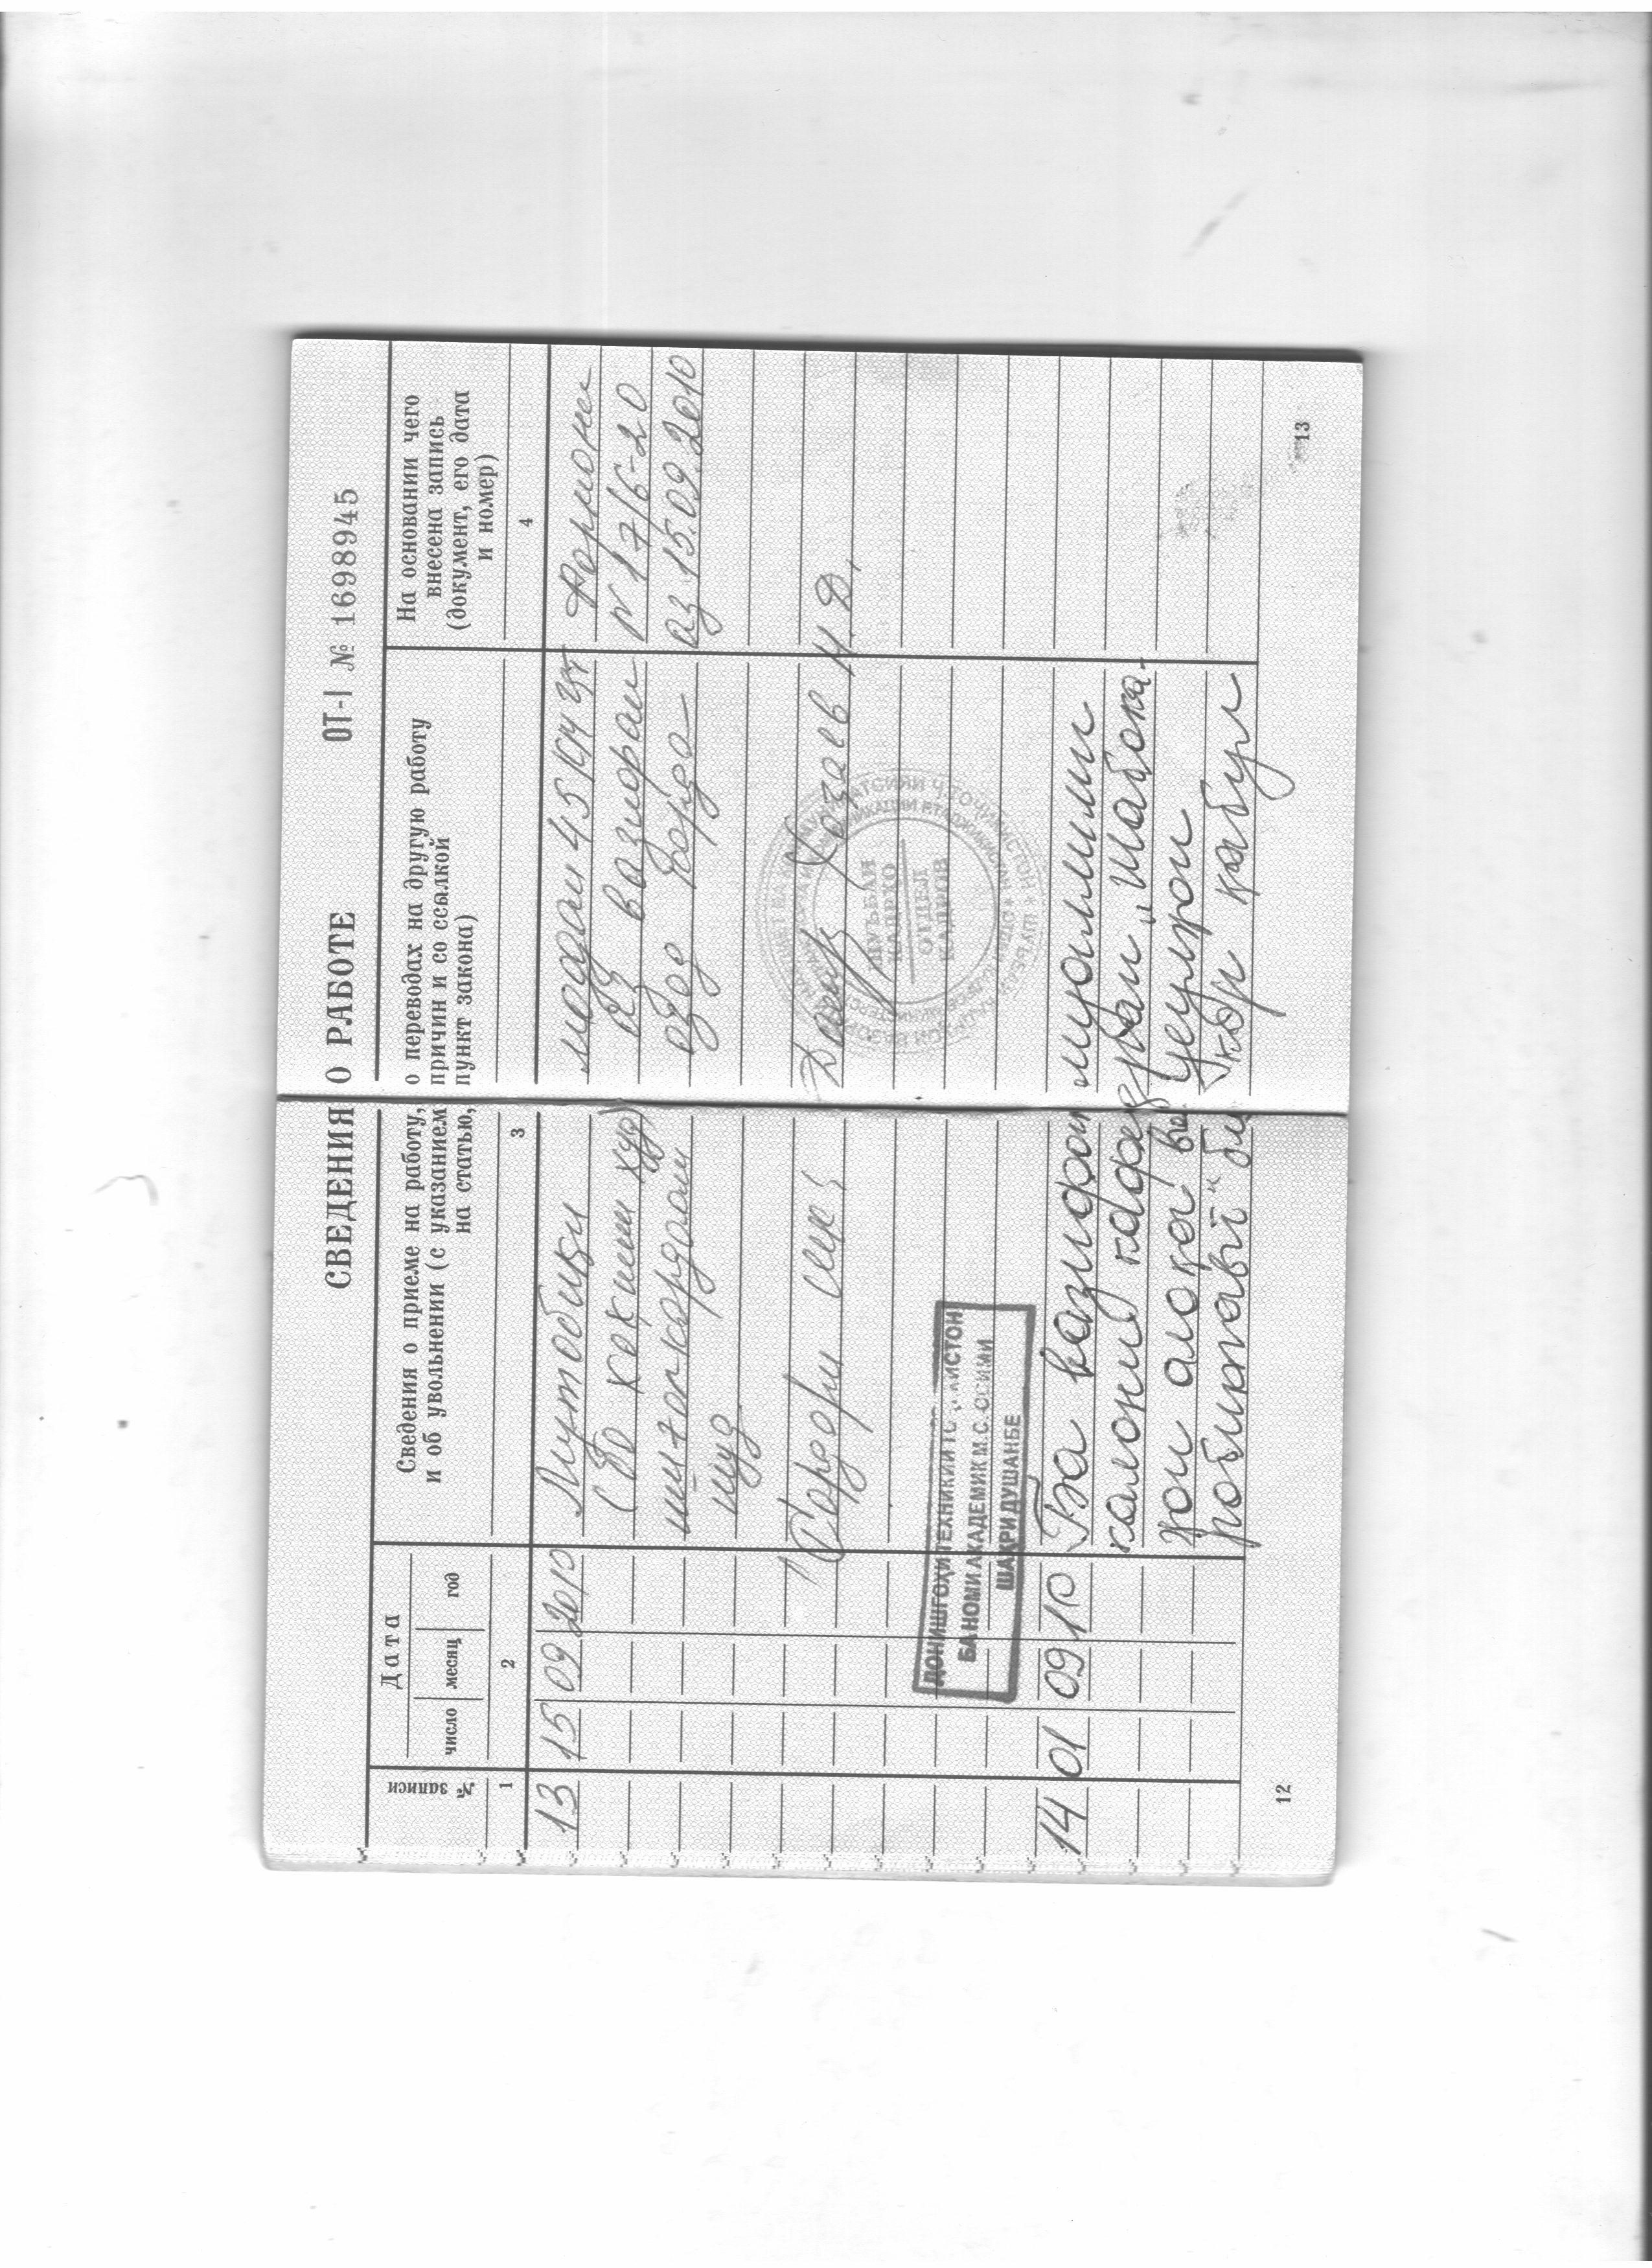 СВЕДЕНИЯ О РАБОТЕ
ОТ-I № 1698945
№ записи
Дата
число месяц год
Сведения о приеме на работу, о переводах на другую работу
и об увольнении (с указанием причин и со ссылкой
на статью, пункт закона)
На основании чего
внесена запись
(документ, его дата
и номер)
1 2 3 4
13 15 09 2010 Мутобиқи моддаи 45
Фармони
(бо хохиши худ) аз вазифаи
№ 176-20
озод карда
аз 15.09.2010
шуд
Сардори Хозаев Н.Д.
ШУЪБАИ
КАДРХО
ОТДЕЛ
КАДРОВ
ДОНИШГОҲИ ТЕХНИКИИ
БА НОМИ АКАДЕМИК М.С. ОСИМИ
ШАҲРИ ДУШАНБЕ
14 01 09 10 Ба вазифаи муаллими
калони кафедраи „Шабака-
ҳои алоқа ва
ба кор қабул
12
13